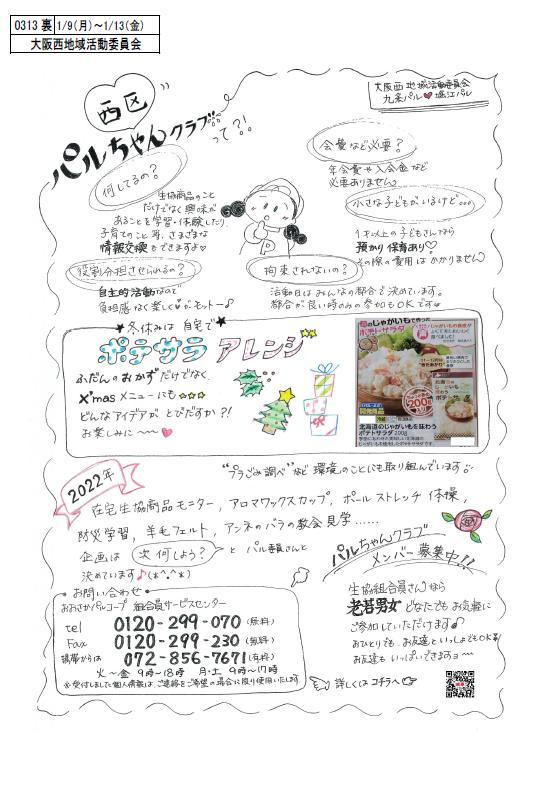 0313 裏 1/9(月)～1/13(金)
大阪西地域活動委員会
大阪西地域活動委員会
九条パル♥堀江パル
西区
パルちゃんクラブって?!
何してるの?
生協商品のこと
だけでなく興味が
あることを学習・体験したり、
子育てのこと等、さまざまな
情報交換もできます♡
会費など必要?
年会費や入会金など
必要ありません。
小さな子どもがいるけど…
1才以上の子どもさんなら
預かり保育あり♡
その際の費用はかかりません
役割分担させられるの?
自主的活動なので
負担感なく楽しく♡がモットー♪
拘束されないの?
活動日はみんなの都合で決めています。
都合が良い時のみの参加もOKです♡
冬休みは自宅で
ポテサラ アレンジ
ふだんのおかずだけでなく、
X'masメニューにも☆☆☆
どんなアイデアがとびだすか?!
お楽しみに〜〜♥
旬のじゃがいもで作った
ポテトサラダ
開発商品
北海道のじゃがいもを味わう
ポテトサラダ200g
"プラごみ調べ"など環境のことにも取り組んでいます
2022年
在宅生協商品モニター, アロマワックスカップ, ポールストレッチ体操,
防災学習, 羊毛フェルト, アンネのバラの教会見学……
企画は 次何しよう? と パル委員さんと
決めています♪(*^_^*)
パルちゃんクラブ
メンバー募集中!!
生協組合員さんなら
老若男女 どなたでもお気軽に
ご参加していただけます♪
おひとりでも、お友達といっしょでもOK
お友達もいっぱいできますョ〜
詳しくはコチラへ
お問い合わせ
おおさかパルコープ 組合員サービスセンター
tel 0120-299-070(無料)
Fax 0120-299-230(無料)
携帯からは 072-856-7671(有料)
火〜金 9時〜18時 月・土 9時〜17時
※受付しました個人情報は、ご連絡をご希望の場合に限り使用いたします。